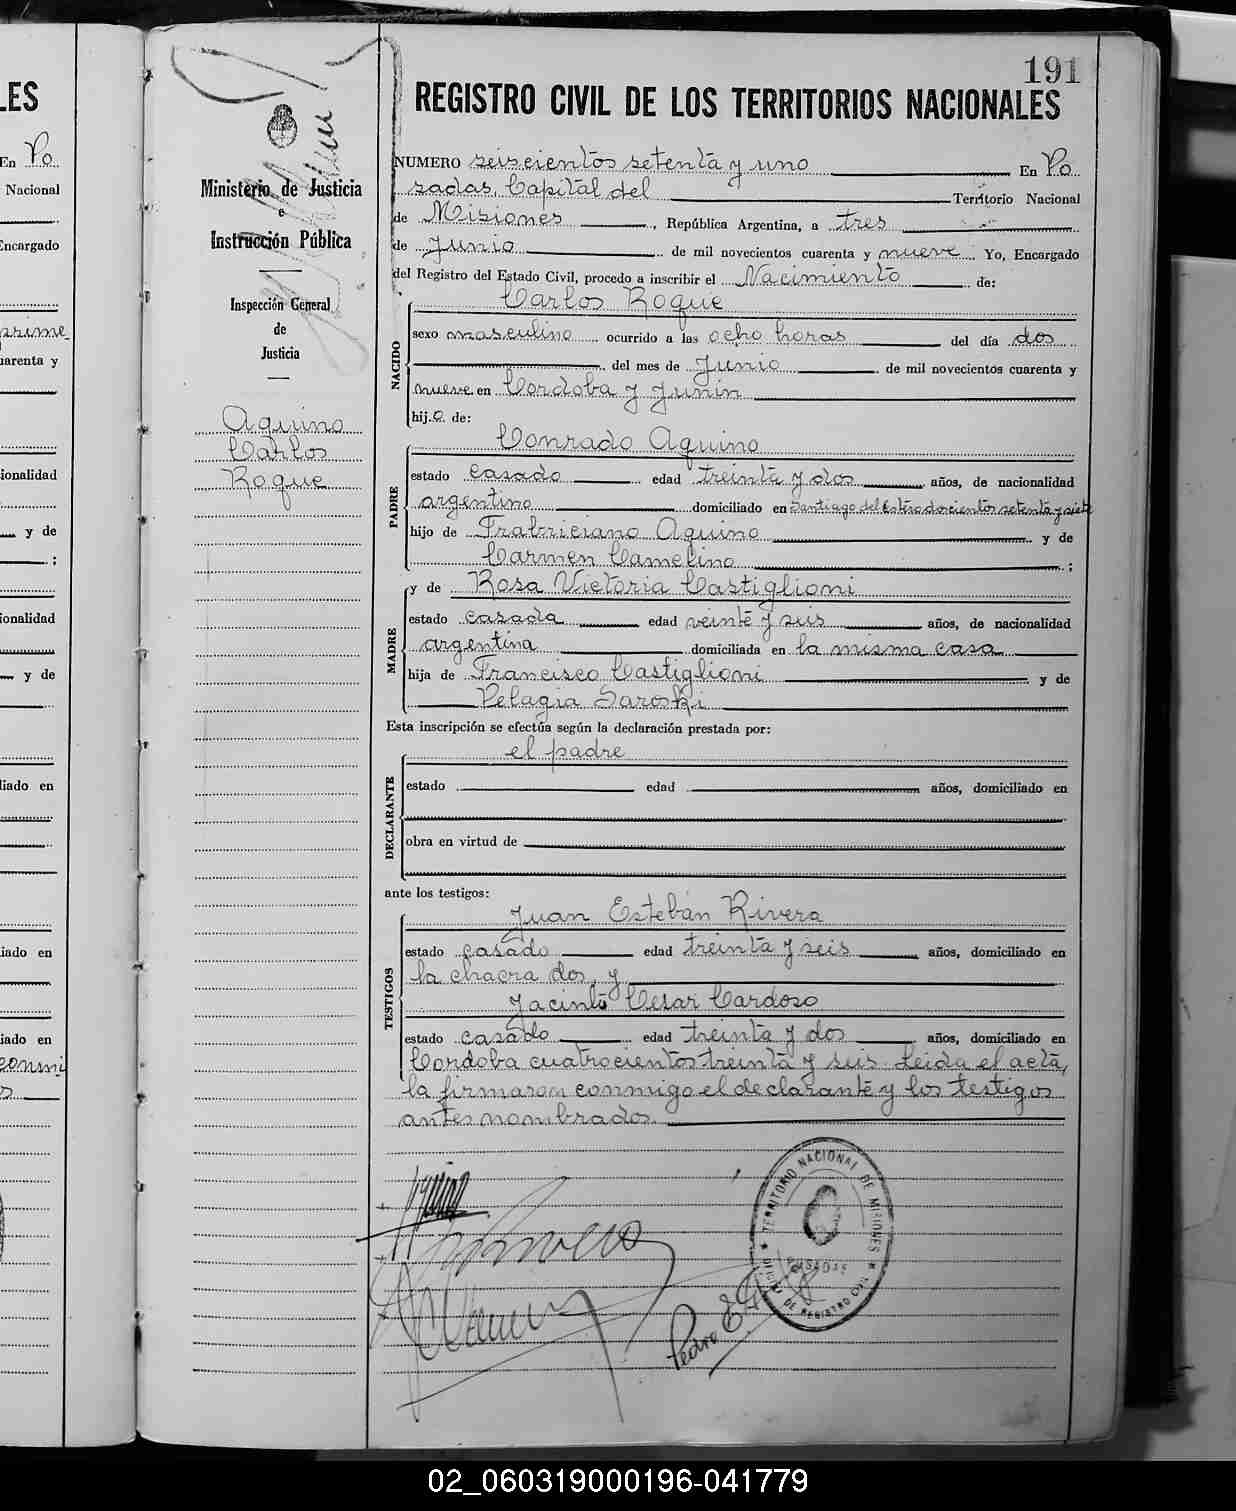 191
REGISTRO CIVIL DE LOS TERRITORIOS NACIONALES
Ministerio de Justicia
e
Instrucción Pública
Inspección General
de
Justicia
Aquino
Carlos
Roque
NUMERO seiscientos setenta y uno En Po
sadas, Capital del Territorio Nacional
de Misiones, República Argentina, a tres
de Junio de mil novecientos cuarenta y nueve Yo, Encargado
del Registro del Estado Civil, procedo a inscribir el Nacimiento de:
NACIDO
Carlos Roque
sexo masculino ocurrido a las ocho horas del día dos
del mes de Junio de mil novecientos cuarenta y
nueve en Cordoba y Junin
hijo de:
PADRE
Conrado Aquino
estado casado edad treinta y dos años, de nacionalidad
argentino domiciliado en Santiago del Estero doscientos setenta y siete
hijo de Frabriciano Aquino y de
Carmen Camelino ;
MADRE
y de Rosa Victoria Castiglioni
estado casada edad veinte y seis años, de nacionalidad
argentina domiciliada en la misma casa
hija de Francisco Castiglioni y de
Pelagia Saroski
Esta inscripción se efectúa según la declaración prestada por:
DECLARANTE
el padre
estado edad años, domiciliado en
obra en virtud de
ante los testigos:
TESTIGOS
Juan Esteban Rivera
estado casado edad treinta y seis años, domiciliado en
la chacra dos, y
Jacinto Cesar Cardoso
estado casado edad treinta y dos años, domiciliado en
Cordoba cuatrocientos treinta y seis. Leida el acta,
la firmaron conmigo el declarante y los testigos
antes nombrados.
TERRITORIO NACIONAL DE MISIONES
POSADAS
OFICINA DE REGISTRO CIVIL
Pedro
LES
En Po
Nacional
Encargado
prime
uarenta y
ionalidad
y de
;
ionalidad
y de
liado en
iado en
iado en
conmi
02_060319000196-041779